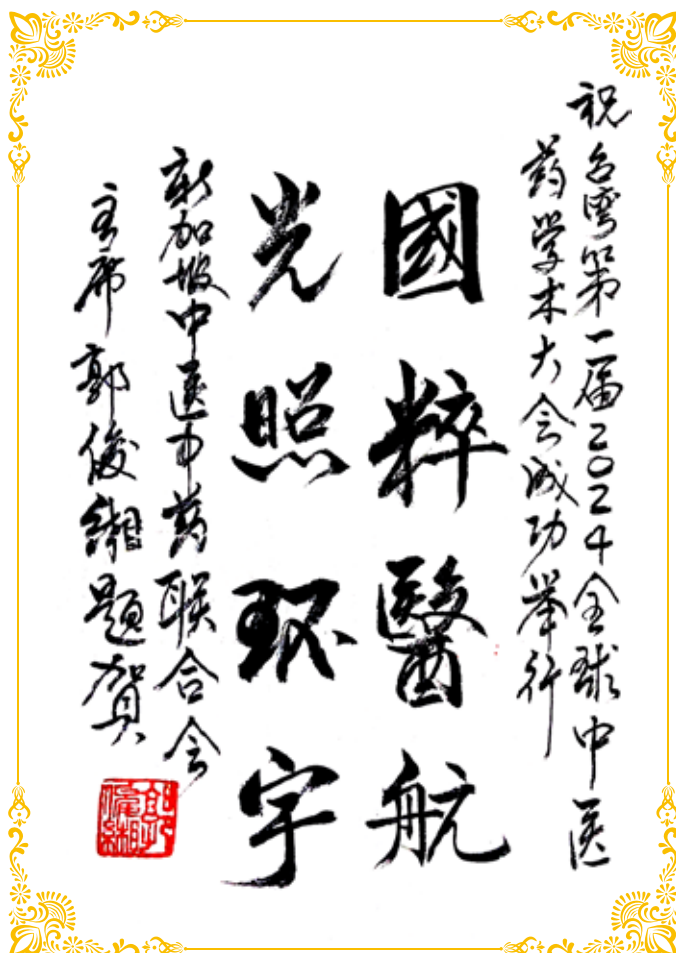 祝台湾第二届2024全球中医
药学术大会成功举行
國粹醫航
光照环宇
新加坡中医中药联合会
主席郭俊缃题贺
郭俊緗